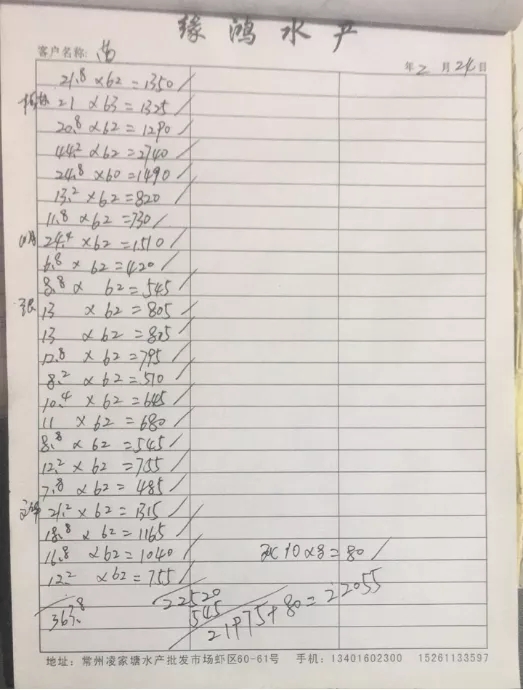 缘鸿水产
客户名称: 年2月24日
21.8×62=1350
21×63=1325
20.8×62=1290
44.2×62=2740
24.8×60=1490
13.2×62=820
11.8×62=730
24.4×62=1510
6.8×62=420
8.8×62=545
张 13×62=805
13×62=805
12.8×62=795
8.2×62=510
10.4×62=645
11×62=680
8.8×62=545
12.2×62=755
7.8×62=485
21.2×62=1315
18.8×62=1165
16.8×62=1040 10×8=80
12.2×62=755
363.8 22520
545
21975+80=22055
地址：常州凌家塘水产批发市场虾区60-61号 手机：13401602300 15261133597